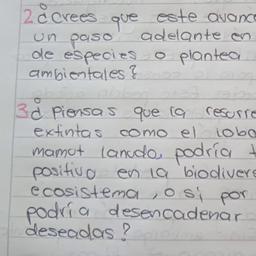 2 ¿crees que este avance
un paso adelante en
de especies o plantea
ambientales?
3 ¿ piensas que la
extintas como el lobo
mamut lanudo, podría
positivo en la
ecosistema, o si por
podría desencadenar
deseadas?